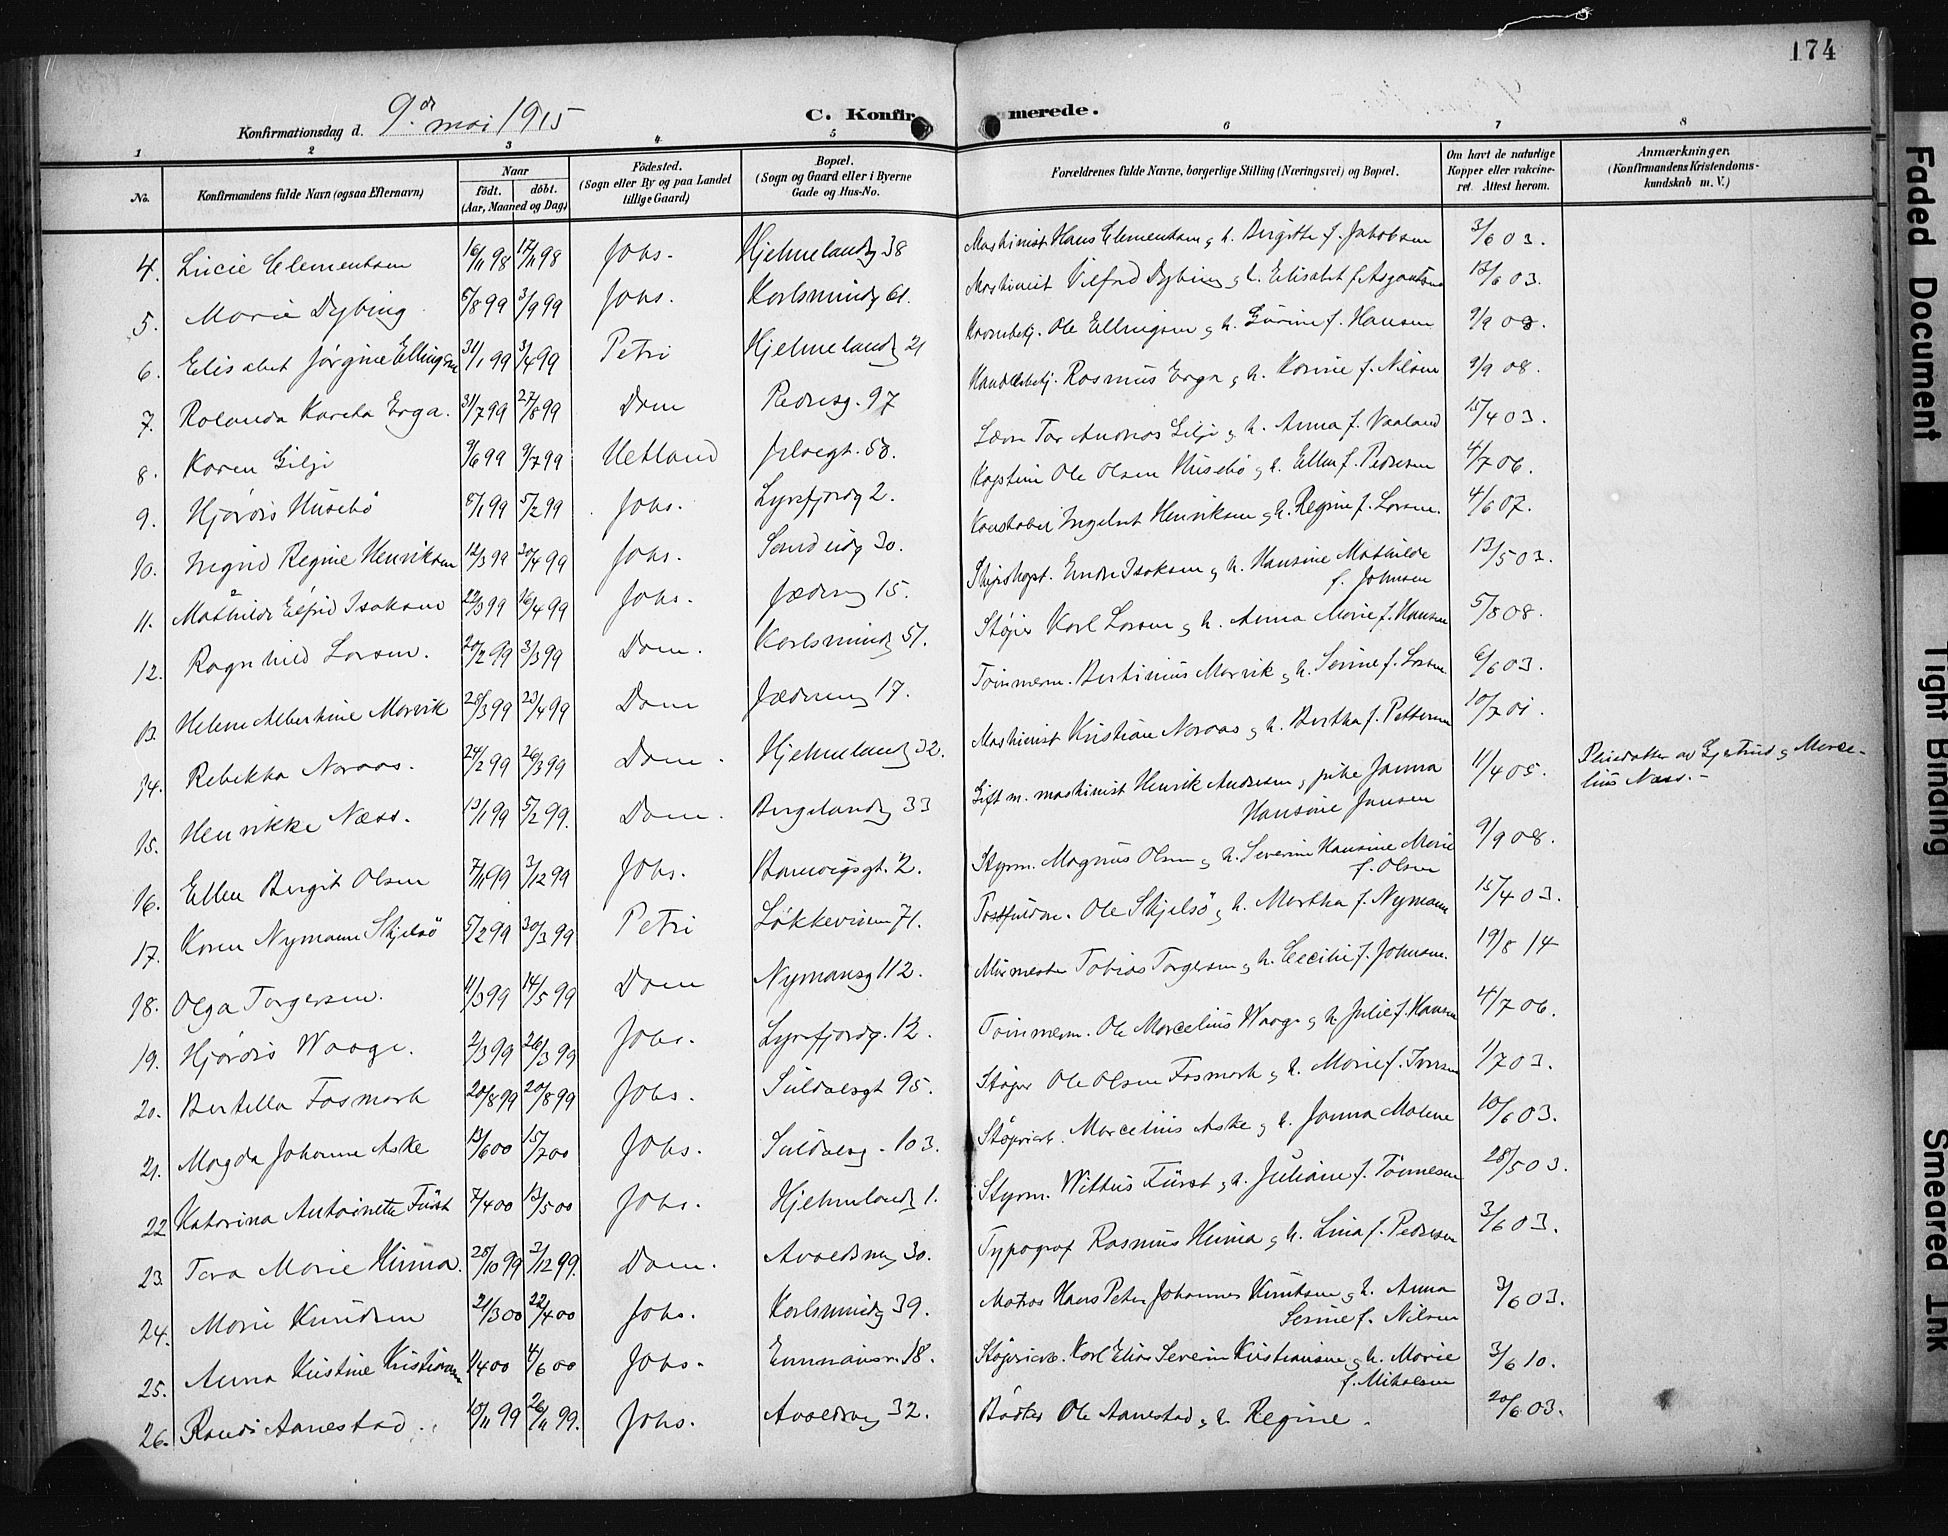 174
Konfirmationsdag d. 9de mai 1915
C. Konfirmerede.
1 2 3 4 5 6 7 8
No. Konfirmandens fulde Navn (ogsaa Efternavn) Naar født. døbt. (Aar, Maaned og Dag) Fødested. (Sogn eller By og paa Landet tillige Gaard) Bopæl. (Sogn og Gaard eller i Byerne Gade og Hus-No. Forældrenes fulde Navne, borgerlige Stilling (Næringsvei) og Bopæl. Om havt de naturlige Kopper eller vakcineret. Attest herom. Anmærkninger. (Konfirmandens Kristendomskundskab m. V.)
4. Lucie Clementsen 16/11 98 17/11 98 Johs. Hjelmelandsg 38 Maskinist Hans Clementsen og h. Birgitte f. Jakobsen 3/6 03.
5. Marie Dybing 5/8 99 3/9 99 Johs. Karlsmindeg 61. Maskinist Dybing og h. Elisabet f. 13/6 03.
6. Elisabet Jørgine Ellingsen 31/1 99 3/4 99 Petri Hjelmelandsg 21 Ole Ellingsen og h. Gurine f. Hansen 9/9 08.
7. Rolanda Karita Erga. 31/7 99 27/8 99 Dom Pedersg. 97 Handelsbetj. Rasmus Erga og h. Karine f. Nilsen 9/9 08.
8. Karen Gilje 9/6 99 9/7 99 Hetland 58. Andreas Gilje og h. Anna f. Vaaland 15/4 03.
9. Hjørdis Husebø 8/1 99 5/2 99 Johs. Lysefjordg 2. Kaptein Ole Olsen Husebø og h. Ellen f. Pedersen 4/7 06.
10. Ingrid Regine Henriksen 12/3 99 30/4 99 Johs. Sandeidg 30. Konstabel Ingebret Henriksen og h. Regine f. Larsen. 4/6 07.
11. Mathilde Elfrid Isaksen 22/3 99 16/4 99 Johs. Jæderveg 15. Skipskapt. Endre Isaksen og h. Hansine Mathilde f. Johnsen 13/5 03.
12. Ragnhild Larsen. 20/2 99 3/3 99 Dom. Karlsmindeg 51. Støper Karl Larsen og h. Anna Marie f. Hansen 5/8 08.
13. Helene Albertine Marvik 28/3 99 23/4 99 Dom Jæderveg 17. Tømmerm. Bertinius Marvik og h. Serine f. Larsen 6/6 03.
14. Rebekka Noraas. 24/2 99 26/3 99 Dom. Hjelmelandsg 32. Maskinist Kristian Noraas og h. Bertha f. Pettersen 10/7 01.
15. Henrikke Næss. 13/1 99 5/2 99. Dom. Bergelandsg 33 Gift m. maskinist Henrik Andresen og pike Janna Hansine Jansen 11/4 05. Pleiedatter av Gjertrud og Marcelius Næss. -
16. Ellen Birgit Olsen 7/11 99 3/12 99 Johs. Banevigsgt. 2. Styrm. Magnus Olsen og h. Severine Hansine Marie f. Olsen 9/9 08.
17. Karen Nymann Skjelsø 5/2 99 30/3 99 Petri Løkkeveien 71. Ole Skjelsø og h. Martha f. Nymann 15/4 03.
18. Olga Torgersen. 11/3 99 14/5 99 Dom Nymansg 112. Murmester Tobias Torgersen og h. Cecilie f. Johnsen. 19/8 14
19. Hjørdis Waage. 2/3 99 26/3 99 Johs. Lysefjordg. 12. Tømmerm. Ole Marcelius Waage og h. Julie f. Hansen 4/7 06.
20. Bertella Fosmark 20/8 99 20/8 99 Johs. Suldalsgt 95. Støper Ole Olsen Fosmark og h. Marie f. Iversen 1/7 03.
21. Magda Johanne Aske 13/6 00 15/7 00 Johs. Suldalsg. 103. Støperiarb. Marcelius Aske og h. Janna Malene 10/6 03.
22 Katarina Antoinette Fürst 7/4 00 13/5 00 Johs. Hjelmelandsg 1. Styrm. Wittus Fürst og h. Juliane f. Tønnesen 28/5 03.
23. Tora Marie Hinna. 28/10 99 3/12 99. Dom. Avaldsneg 30. Typograf Rasmus Hinna og h. Lina f. Pedersen 3/6 03.
24. Marie Knudsen 21/3 00 22/4 00 Johs. Karlsmindeg 39. Matros Hans Peter Johannes Knutsen og h. Anna Serine f. Nilsen 3/6 03.
25. Anna Kristine Kristiansen 1/4 00 4/6 00 Johs. Emmausv. 18. Støperiarb. Karl Elias Severin Kristiansen og h. Marie f. Mikalsen 3/6 10.
26. Randi Aanestad. 10/11 99 26/11 99. Johs. Avaldsneg 32. Bødker Ole Aanestad og h. Regine. 20/6 03.
Faded Document
Tight Binding
Smeared Ink